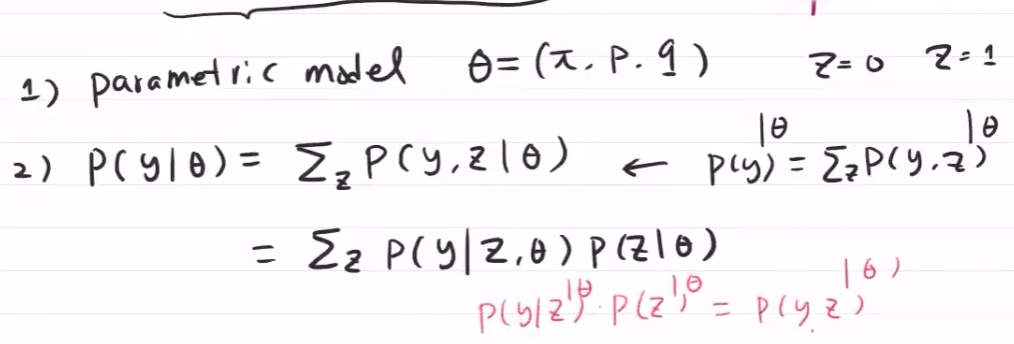 1) parametric model θ = (π, p, q) z=0 z=1
2) P(y|θ) = Σ_z P(y,z|θ) ← P(y|θ) = Σ_z P(y,z|θ)
= Σ_z P(y|z,θ) P(z|θ)
P(y|z|θ)·P(z|θ) = P(y,z|θ)